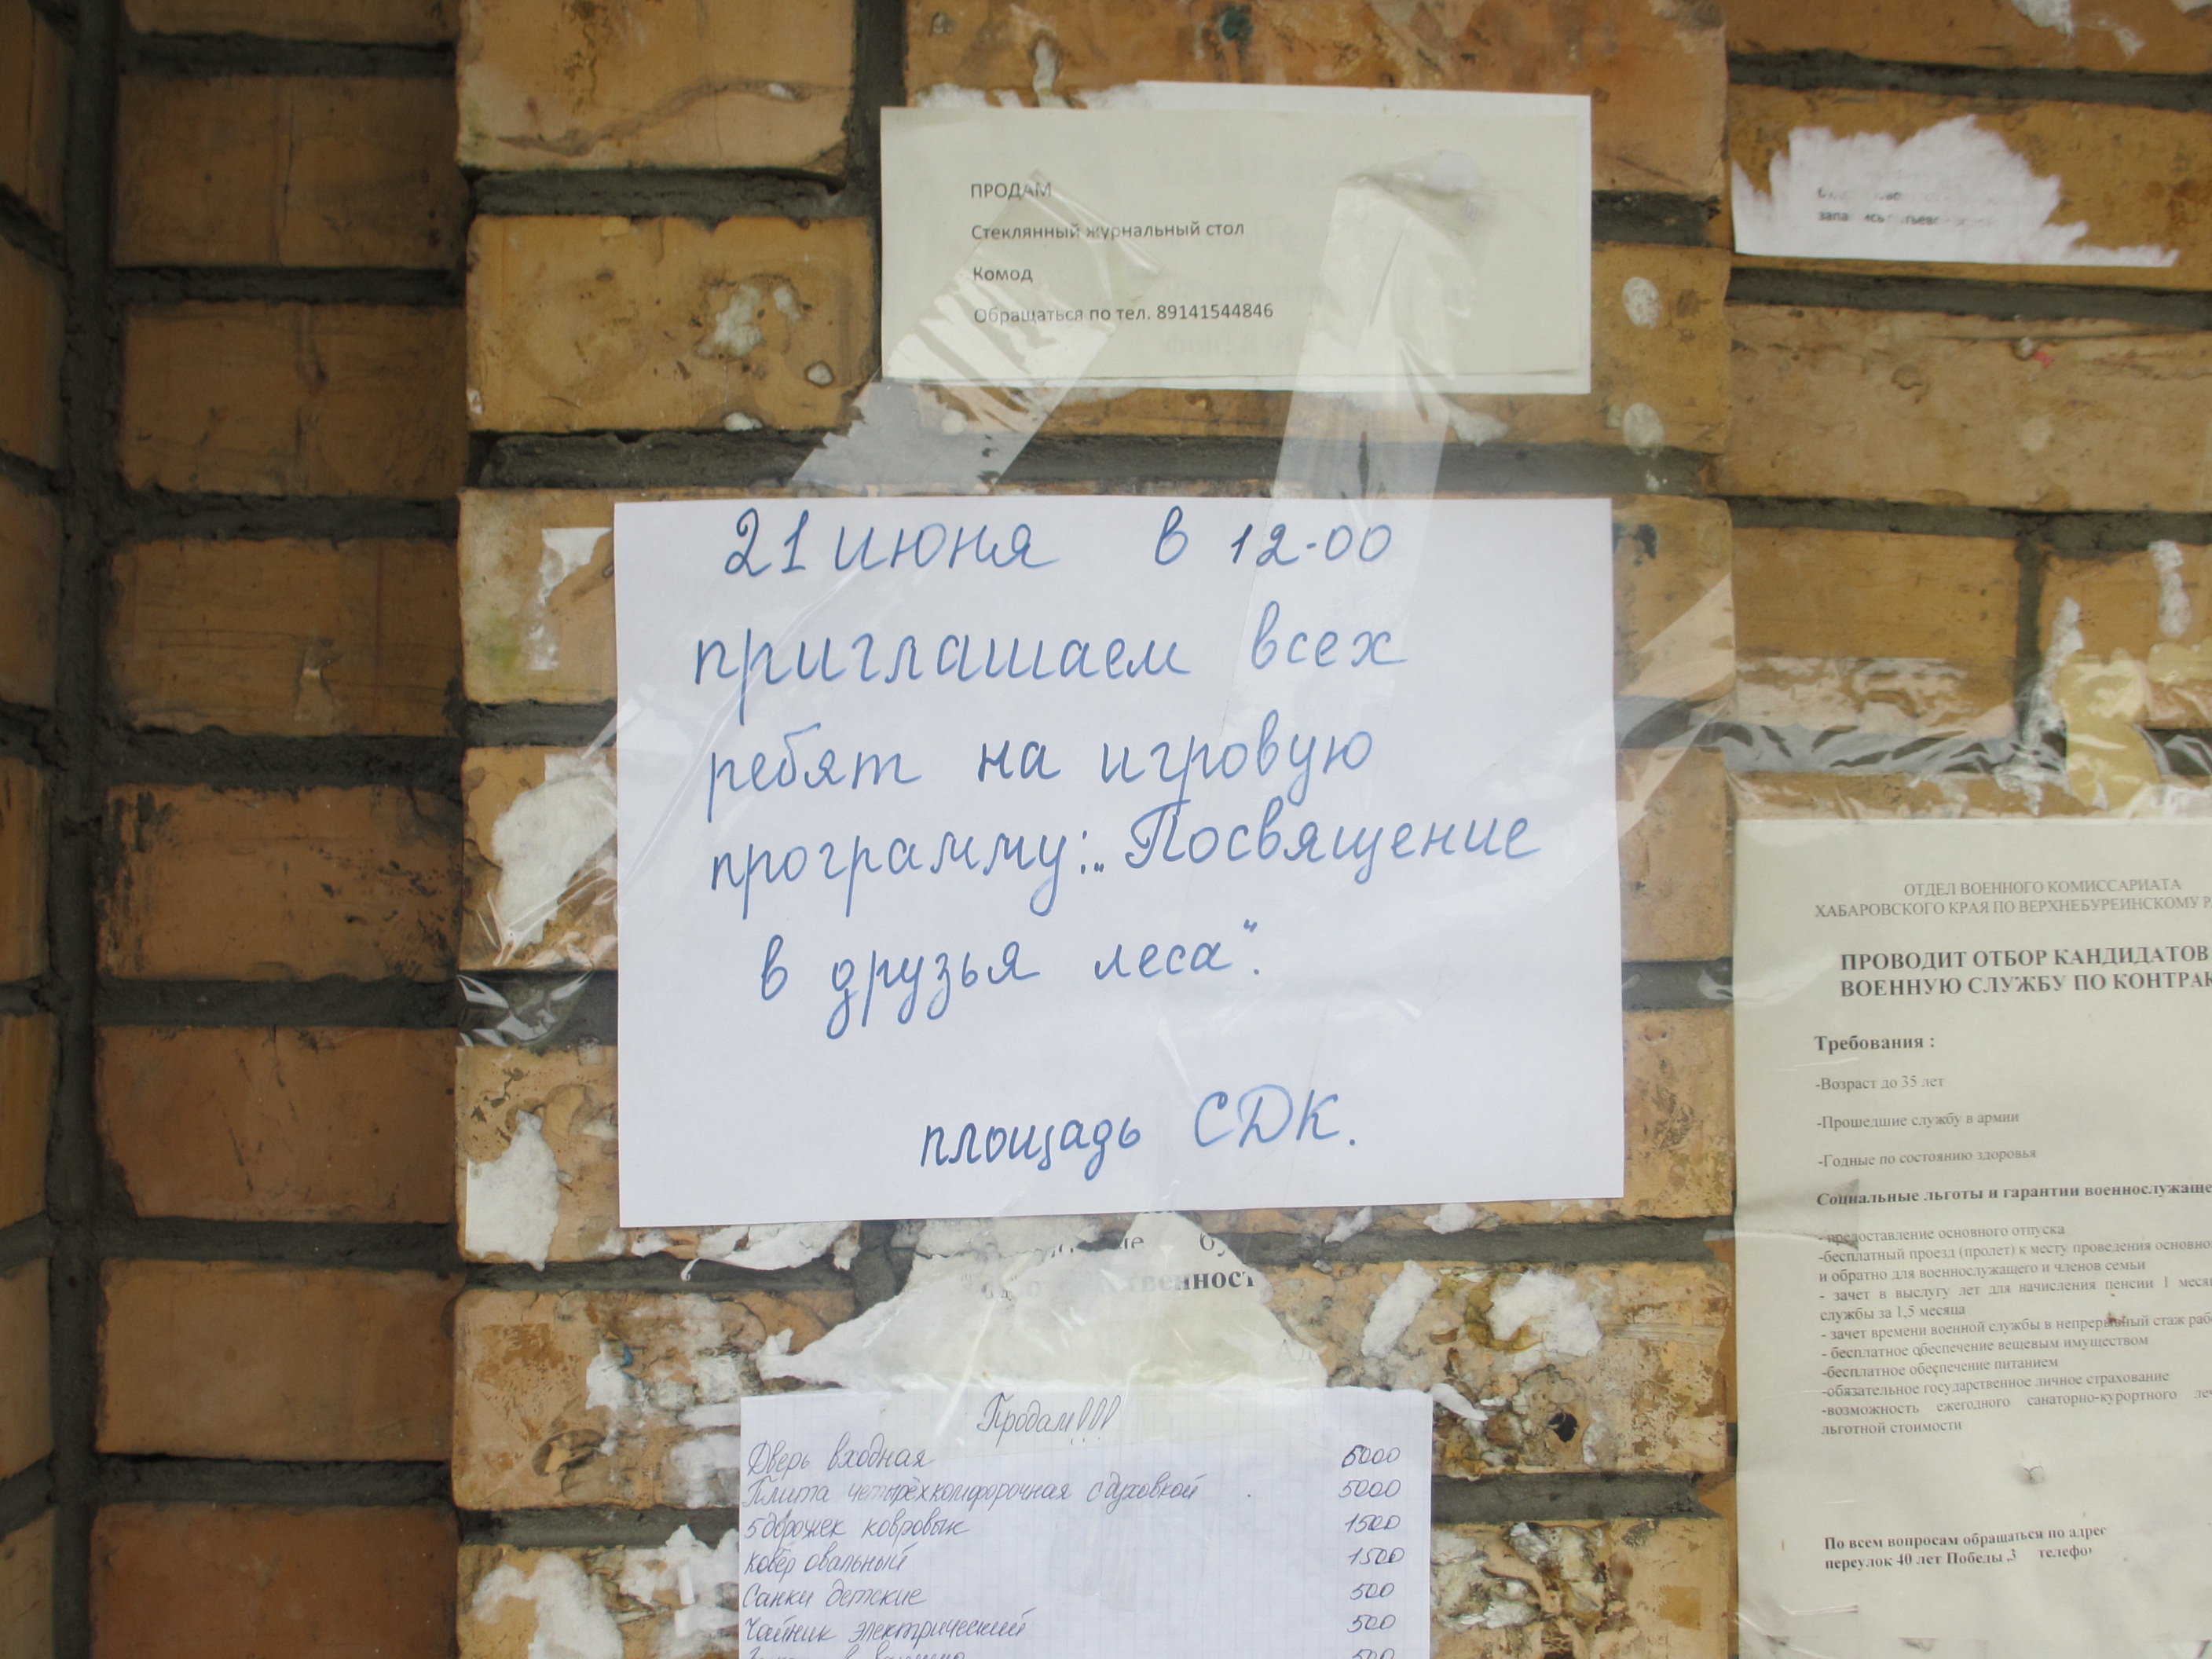 ПРОДАМ
Стеклянный журнальный стол
Комод
Обращаться по тел. 89141544846
21 июня в 12-00
приглашаем всех
ребят на игровую
программу: „Посвящение
в друзья леса“.
площадь СДК.
Продам!!!
Дверь входная 6000
Плита четырёхкомфорочная с духовкой 5000
5 дорожек ковровых 1500
Ковёр овальный 1500
Санки детские 500
Чайник электрический 500
500
ОТДЕЛ ВОЕННОГО КОМИССАРИАТА
ХАБАРОВСКОГО КРАЯ ПО ВЕРХНЕБУРЕИНСКОМУ Р
ПРОВОДИТ ОТБОР КАНДИДАТОВ
ВОЕННУЮ СЛУЖБУ ПО КОНТРАК
Требования :
-Возраст до 35 лет
-Прошедшие службу в армии
-Годные по состоянию здоровья
Социальные льготы и гарантии военнослужаще
- предоставление основного отпуска
-бесплатный проезд (пролет) к месту проведения основно
и обратно для военнослужащего и членов семьи
- зачет в выслугу лет для начисления пенсии 1 меся
службы за 1,5 месяца
- зачет времени военной службы в непрерывный стаж раб
- бесплатное обеспечение вещевым имуществом
-бесплатное обеспечение питанием
-обязательное государственное личное страхование
-возможность ежегодного санаторно-курортного ле
льготной стоимости
По всем вопросам обращаться по адрес
переулок 40 лет Победы ,3 телефо